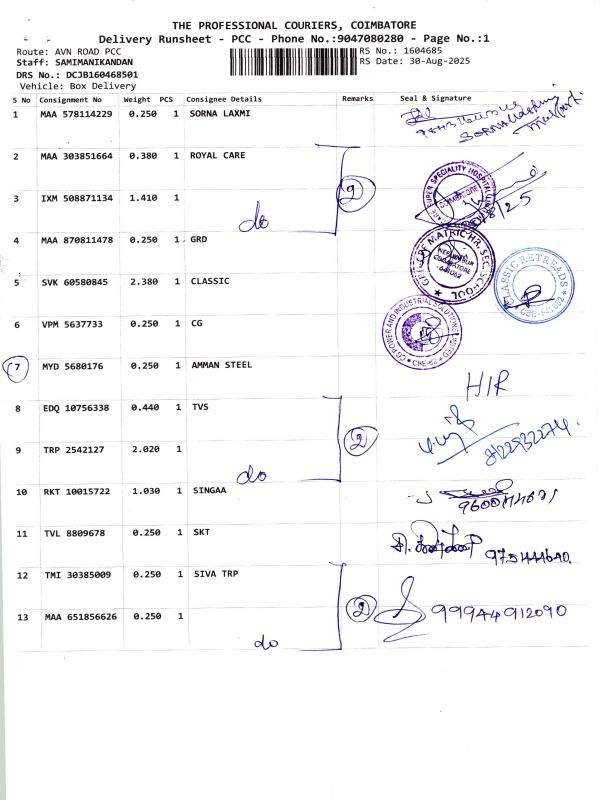 THE PROFESSIONAL COURIERS, COIMBATORE
Delivery Runsheet - PCC - Phone No.:9047080280 - Page No.:1
Route: AVN ROAD PCC
RS No.: 1604685
Staff: SAMIMANIKANDAN
RS Date: 30-Aug-2025
DRS No.: DCJB160468501
Vehicle: Box Delivery
S No Consignment No Weight PCS Consignee Details Remarks Seal & Signature
1 MAA 578114229 0.250 1 SORNA LAXMI
2 MAA 303851664 0.380 1 ROYAL CARE
2
3 IXM 508871134 1.410 1 do
4 MAA 870811478 0.250 1 GRD
5 SVK 60580845 2.380 1 CLASSIC
CLASSIC RETREADS
6 VPM 5637733 0.250 1 CG
CG POWER AND INDUSTRIAL SOLUTIONS LIMITED
CBE-62
7 MYD 5680176 0.250 1 AMMAN STEEL
HIR
8 EDQ 10756338 0.440 1 TVS
2
9 TRP 2542127 2.020 1 do
10 RKT 10015722 1.030 1 SINGAA
11 TVL 8809678 0.250 1 SKT
12 TMI 30385009 0.250 1 SIVA TRP
2 99944912090
13 MAA 651856626 0.250 1 do